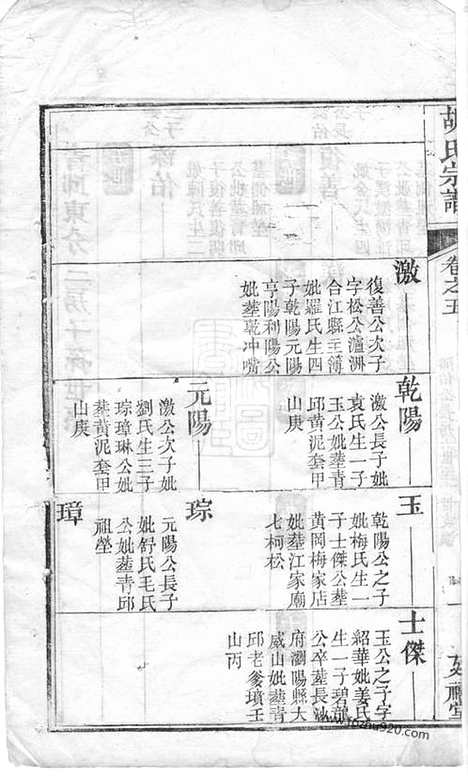 胡氏宗譜
卷之五
激
復善公次子
字松公瀘洲
合江縣主簿
妣羅氏生四
子乾陽元陽
亨陽利陽公
妣塟乾冲嘴
乾陽
激公長子妣
袁氏生一子
玉公妣塟青
邱黄泥套甲
山庚
元陽
激公次子妣
劉氏生三子
琮璋琳公妣
塟黄泥套甲
山庚
玉
乾陽公之子
妣梅氏生一
子士傑公塟
黄岡梅家店
妣塟江家廟
七柯松
琮
元陽公長子
妣舒氏毛氏
公妣塟青邱
祖塋
璋
士傑
玉公之子字
紹華妣姜氏
生一子碧
公卒塟長沙
府瀏陽縣大
威山妣塟青
邱老爹墳壬
山丙
www.fozhu920.com